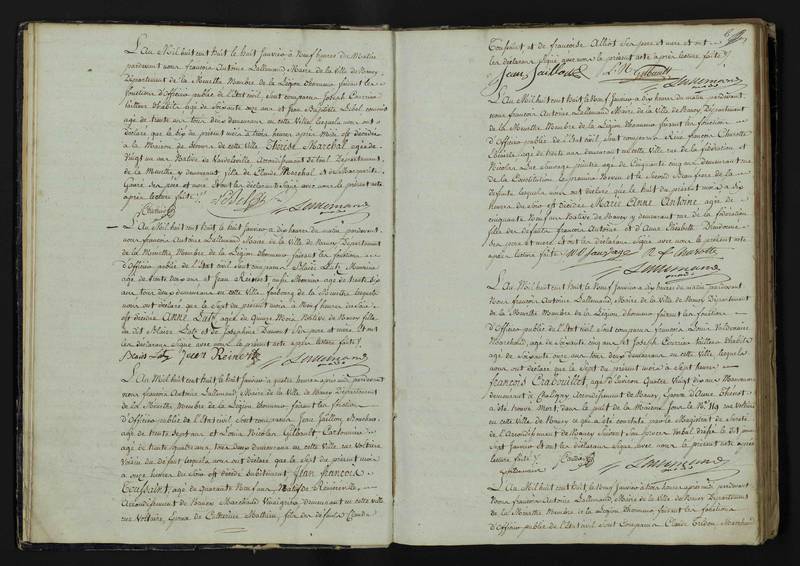 L'an Mil huit cent huit le huit Janvier à Neuf heures du Matin
pardevant nous françois Antoine Lallemand Maire de la Ville de Nancy
Département de la Meurthe Membre de la Légion d'honneur faisant les
fonctions d'Officier public de l'Etat civil sont comparus Joseph Carrier
tailleur d'habits agé de Soixante onze ans et Jean Baptiste Lebel
agé de trente ans tous deux demeurans en cette Ville lesquels nous ont
déclaré que le Six du présent mois à trois heures après Midi est décédée
à la Maison de Secours de cette Ville Thérèse Marchal agée de
Vingt un ans Native de Vandeleville Arrondissement de toul Département
de la Meurthe y demeurant fille de Claude Marchal et de Marguerite
ses père et mère et ont les déclarans Signé avec nous le présent acte
après lecture faite
Lallemand
L'an Mil huit cent huit le huit Janvier à dix heures du matin pardevant
nous françois Antoine Lallemand Maire de la Ville de Nancy Département
de la Meurthe Membre de la Légion d'honneur faisant les fonctions
d'Officier public de l'Etat civil sont comparus Blaise Lutz
agé de trente deux ans et Jean Reinert aussi agé de trente six
ans tous deux demeurans en cette Ville faubourg de la lesquels
nous ont déclaré que le Sept du présent mois à Neuf heures du Soir
est décédée Anne Lutz agée de quinze Mois Native de Nancy fille
du dit Blaise Lutz et de Josephine ses père et mère et ont
les déclarans Signé avec nous le présent acte après lecture faite
Blais Lutz Jean Reinert Lallemand
L'an Mil huit cent huit le huit Janvier à quatre heures après midi pardevant
nous françois Antoine Lallemand Maire de la Ville de Nancy Département
de la Meurthe Membre de la Légion d'honneur faisant les fonctions
d'Officier public de l'Etat civil sont comparus Jean Jaillon
agé de trente Sept ans et Louis Nicolas Gilbault Cartonnier
agé de trente quatre ans tous deux demeurans en cette Ville rue Voltaire
Voisins du défunt lesquels nous ont déclaré que le Sept du présent mois
à onze heures du Soir est décédé Subitement Jean françois
Toussaint, agé de quarante Neuf ans Natif de
Arrondissement de Nancy Marchand Vinaigrier, demeurant en cette ville
rue Voltaire, Epoux de Catherine Mathieu, fils des défunts Claude
Toussaint et de françoise Alliot Ses père et mère et ont
les déclarans Signé avec nous le présent acte après lecture faite
Jean Jaillon L. N. Gilbault Lallemand
L'an Mil huit cent huit le Neuf Janvier à dix heures du matin pardevant
nous françois Antoine Lallemand Maire de la Ville de Nancy, Département
de la Meurthe, Membre de la Légion d'honneur faisant les fonctions
d'Officier public de l'Etat civil, sont comparus René françois Charotte
agé de trente ans, demeurant en cette Ville rue de la fédération et
Nicolas peintre, agé de Cinquante cinq ans demeurant rue
de la Constitution le premier Neveu et le Second Beau frère de la
défunte lesquels nous ont déclaré que le huit du présent mois à dix
heures du Soir est décédée Marie Anne Antoine agée de
cinquante Neuf ans Native de Nancy y demeurant rue de la fédération
fille des défunts françois Antoine et d'Anne Elisabeth
Ses père et mère et ont les déclarans Signé avec nous le présent acte
après lecture faite R. f. Charotte
Lallemand
L'an Mil huit cent huit le Neuf Janvier à dix heures du matin pardevant
Nous françois Antoine Lallemand, Maire de la Ville de Nancy, Département
de la Meurthe Membre de la Légion d'honneur faisant les fonctions
d'Officier public de l'Etat civil sont comparus françois Louis
Marchal, agé de Soixante cinq ans et Joseph Carrier tailleur d'habits
agé de Soixante onze ans tous deux demeurans en cette Ville, lesquels
nous ont déclaré que le Sept du présent mois à Sept heures
françois Crabouillet, agé d'Environ Quatre Vingt dix ans
demeurant à Chaligny Arrondissement de Nancy, Epoux d'Anne Thénot
a été trouvé Mort, dans le puits de la Maison N° 149 rue Voltaire
en cette Ville de Nancy ce qui a été constaté par le Magistrat de Sureté
de l'Arrondissement de Nancy Suivant Son procès Verbal dressé le dit jour
Sept Janvier et ont les déclarans Signé, avec nous le présent acte après
lecture faite
Lallemand
L'an Mil huit cent huit le Neuf Janvier à trois heures après midi pardevant
Nous françois Antoine Lallemand, Maire de la Ville de Nancy Département
de la Meurthe Membre de la Légion d'honneur faisant les fonctions
d'Officier public de l'Etat civil sont Comparus Claude